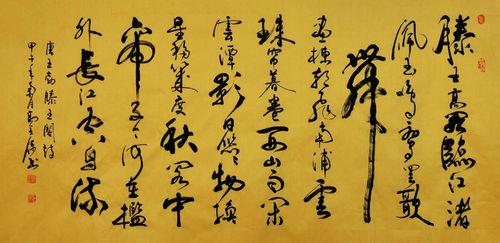 滕王高閣臨江渚
佩玉鳴鸞罷歌
舞
畫棟朝飛南浦雲
珠簾暮卷西山雨閑
雲潭影日悠悠物換
星移幾度秋閣中
帝子今何在檻
外長江空自流
唐王勃滕王閣詩
甲午年 月 書